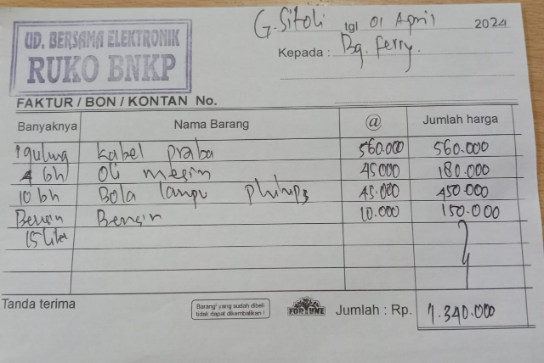 G. Sitoli tgl 01 April 2024
UD. BERSAMA ELEKTRONIK
RUKO BNKP
Kepada : Bg. Ferry.
FAKTUR / BON / KONTAN No.
Banyaknya Nama Barang @ Jumlah harga
1 gulung Kabel praba 560.000 560.000
4 bh Oli mesin 45000 180.000
10 bh Bola lampu philips 45.000 450.000
Bensin Bensin 10.000 150.000
15 liter
Tanda terima
Barang² yang sudah dibeli
tidak dapat dikembalikan !
FORTUNE
Jumlah : Rp. 1.340.000